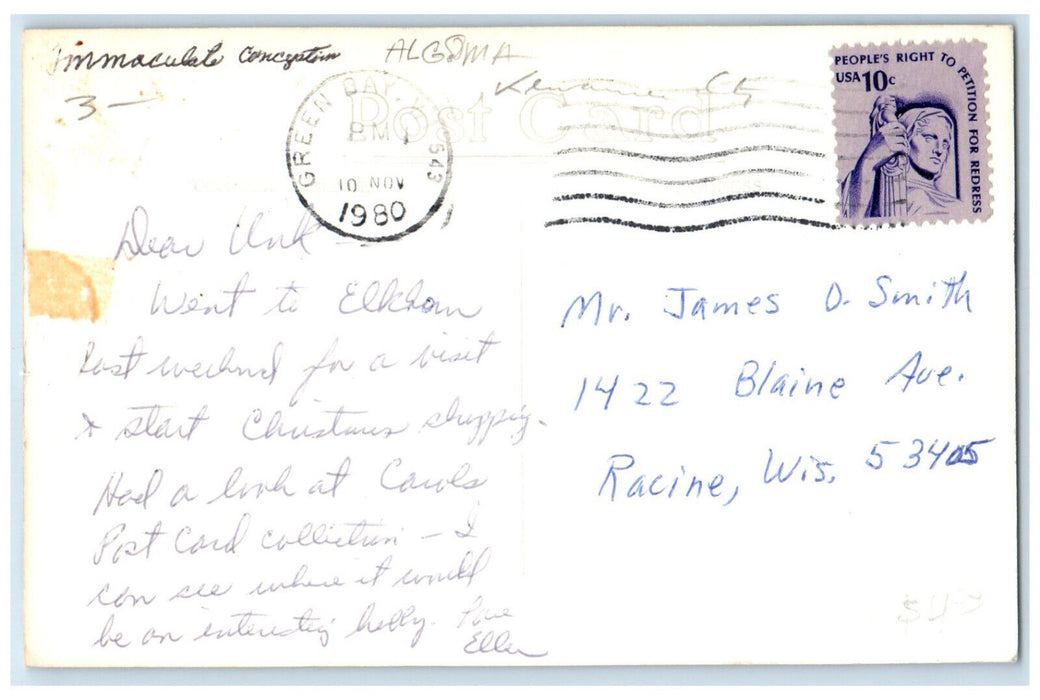 Immaculate Conception ALGOMA
3-
Kewaunee Cty
Post Card
GREEN BAY 543
PM
10 NOV
1980
PEOPLE'S RIGHT TO PETITION FOR REDRESS
USA 10c
Dear Unk -
Went to Elkhorn
last weekend for a visit
& start Christmas shopping.
Had a look at Carols
Post Card collection - I
can see where it would
be an interesting hobby. Love
Ellen
Mr. James D. Smith
1422 Blaine Ave.
Racine, Wis. 53405